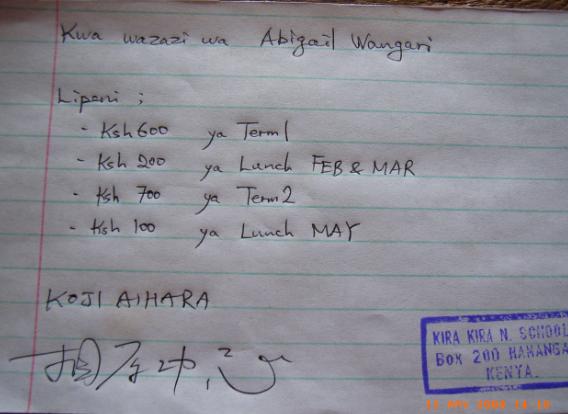 Kwa wazazi wa Abigail Wangari
Lipeni ;
- Ksh 600 ya Term 1
- Ksh 200 ya Lunch FEB & MAR
- Ksh 700 ya Term 2
- Ksh 100 ya Lunch MAY
KOJI AIHARA
KIRA KIRA N. SCHOOL
BOX 200
KENYA.